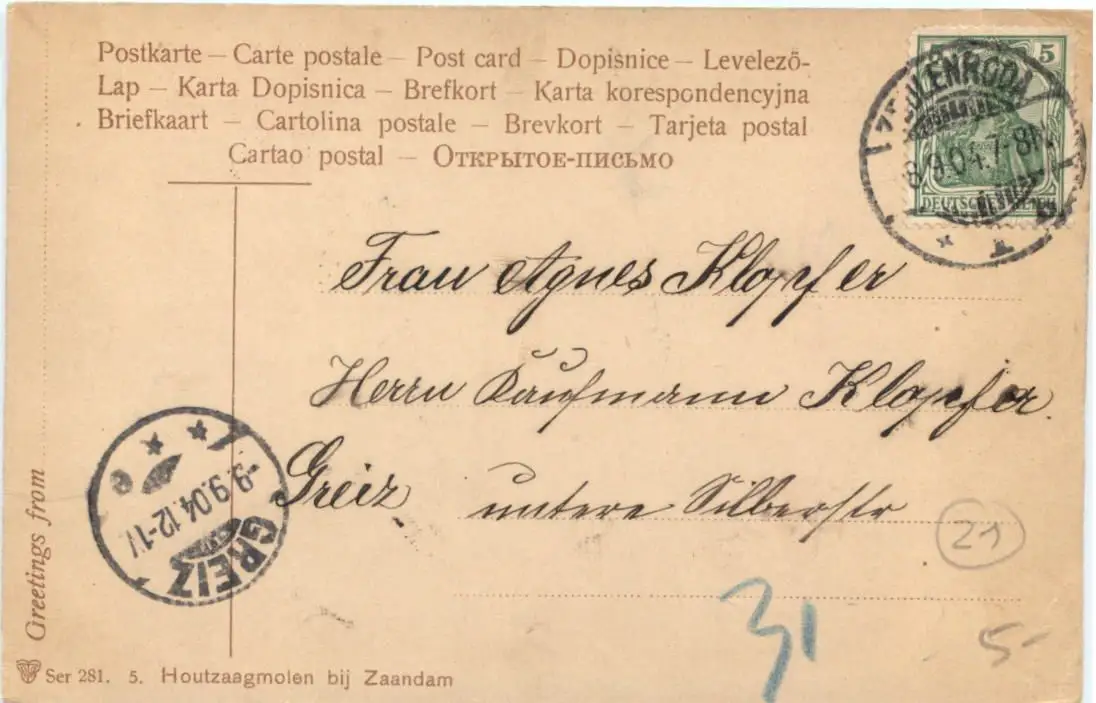 Postkarte – Carte postale – Post card – Dopisnice – Levelező-
Lap – Karta Dopisnica – Brefkort – Karta korespondencyjna
Briefkaart – Cartolina postale – Brevkort – Tarjeta postal
Cartao postal – Открытое-письмо
5
ZEULENRODA
8.9.04.7-8N.
DEUTSCHES REICH
Frau Agnes Klopfer
Herrn Kaufmann Klopfer.
Greiz untere Silberstr
-9.9.04.12-1V
GREIZ
21
31
5-
Greetings from
Ser 281. 5. Houtzaagmolen bij Zaandam